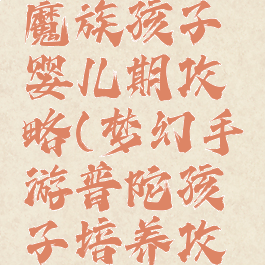 魔族孩子
婴儿期攻
略(梦幻手
游普陀孩
子培养攻